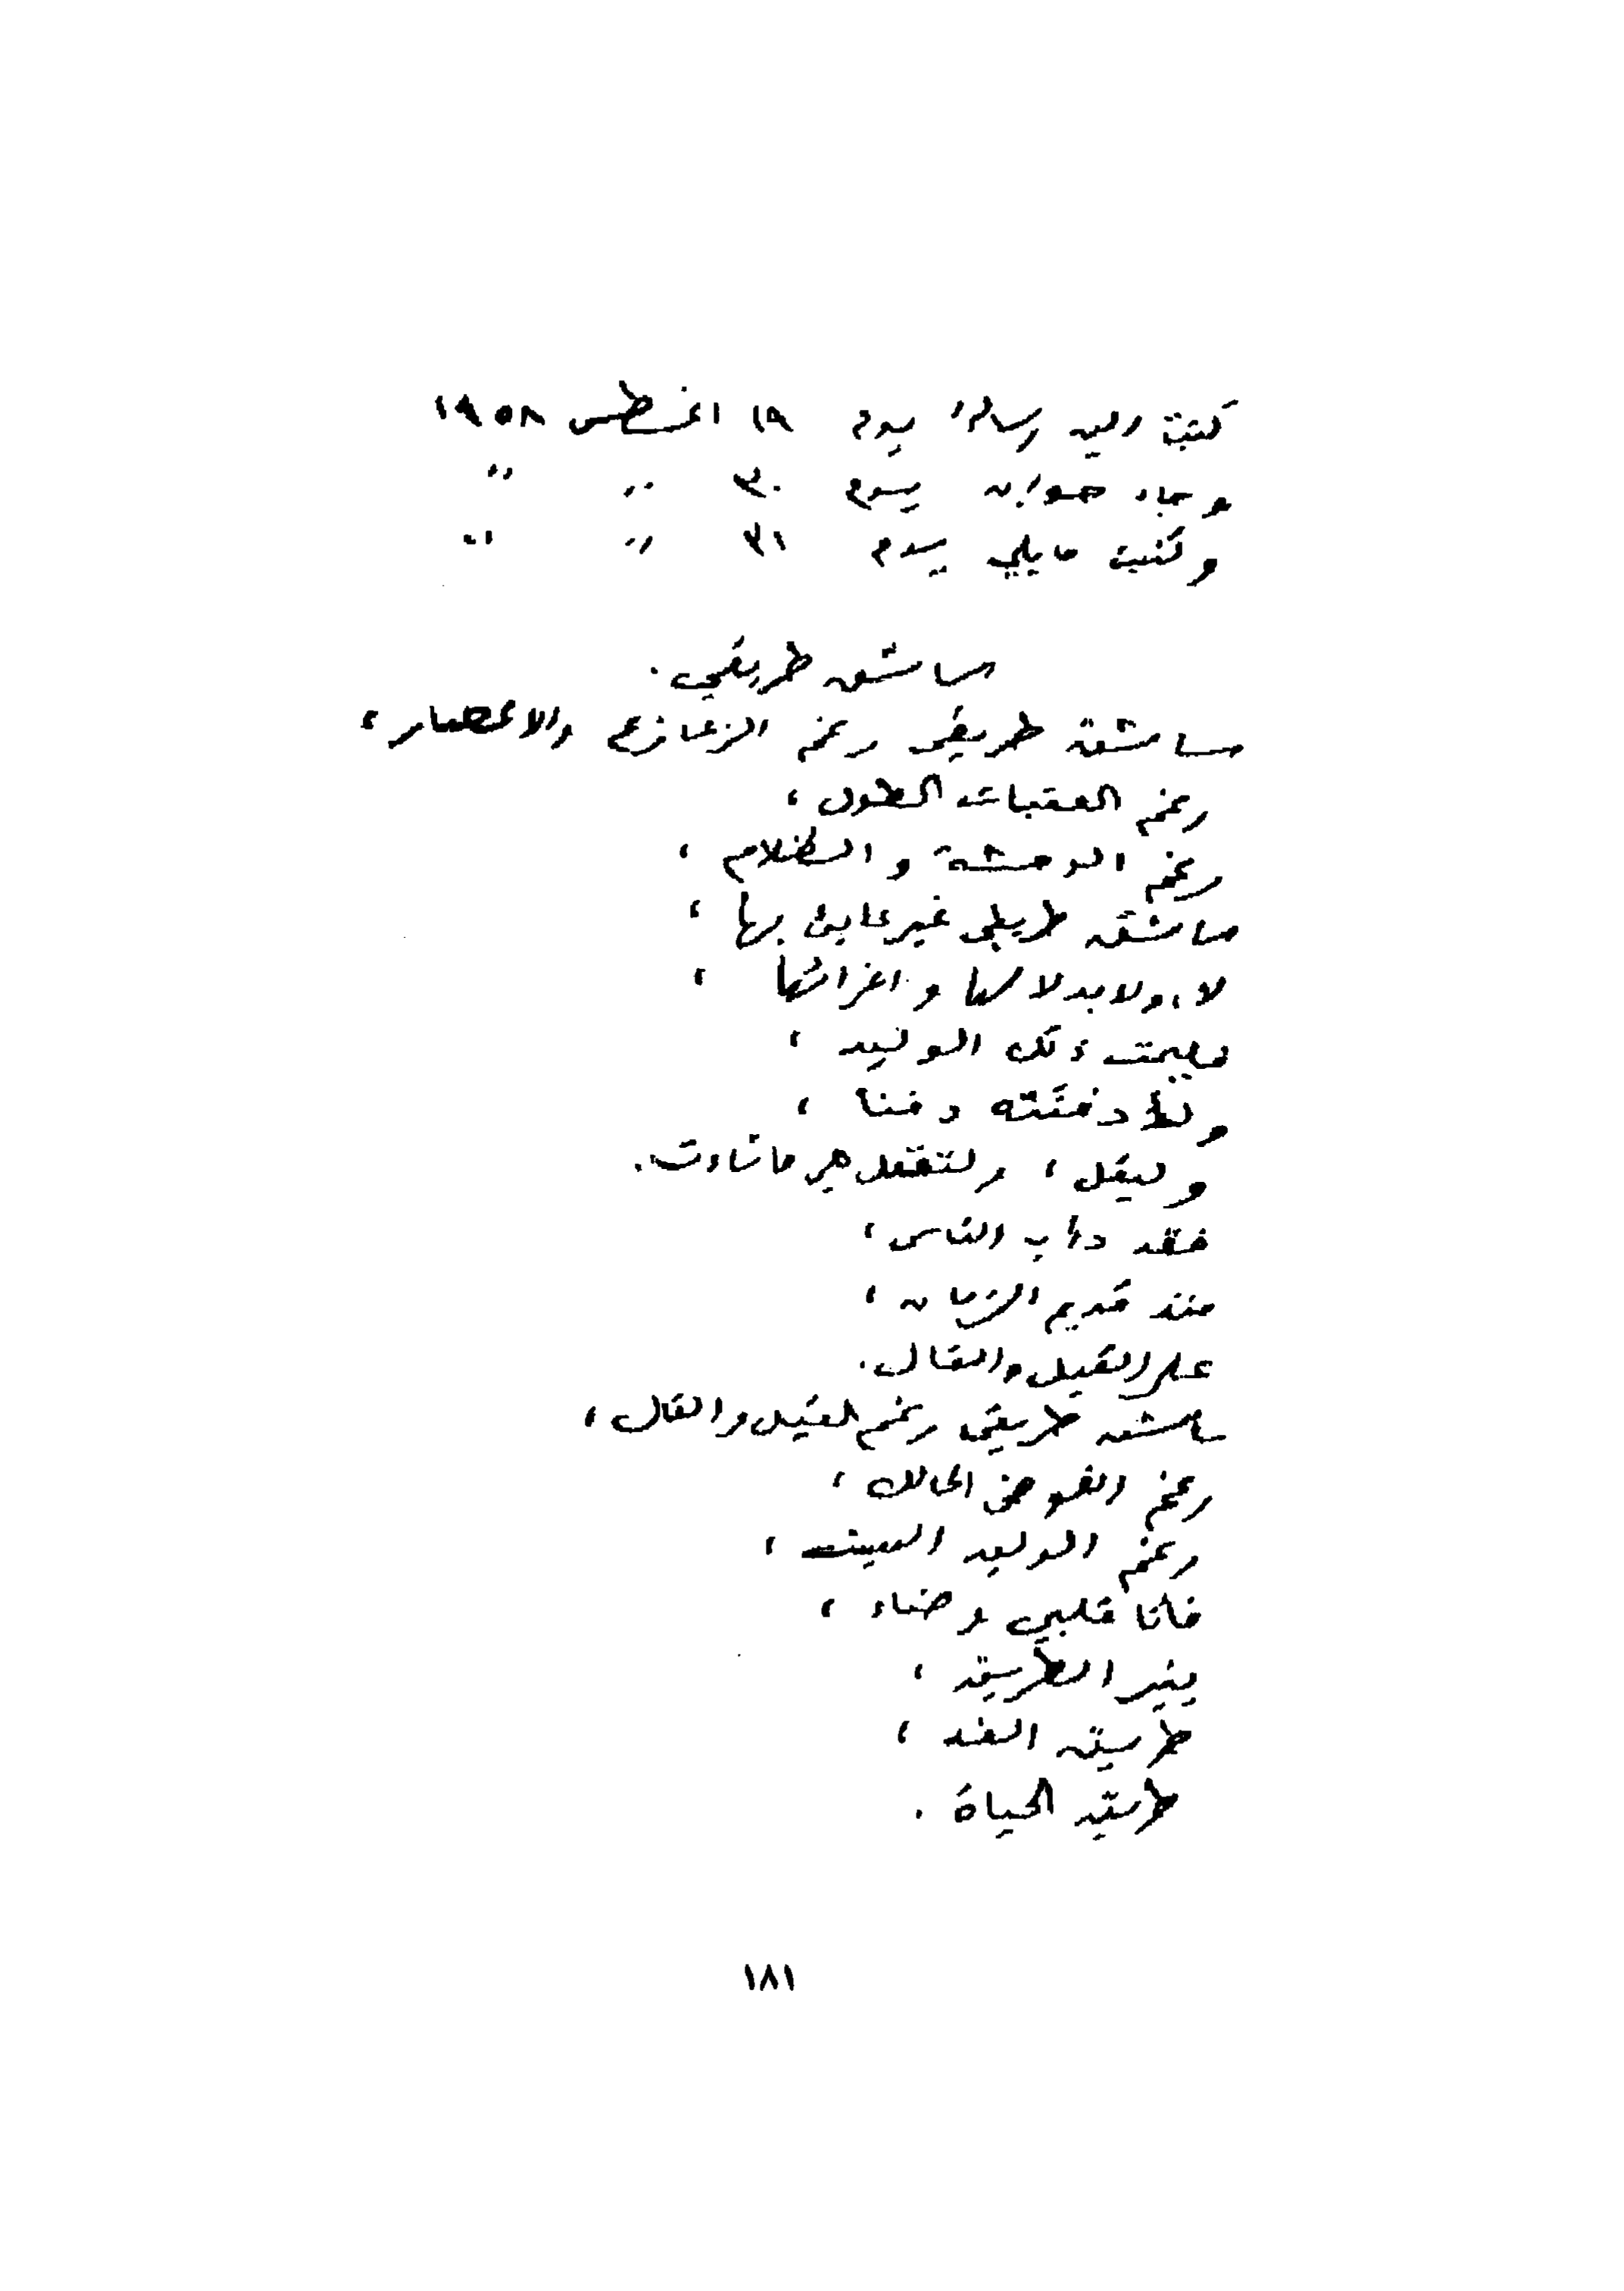 كتبت اليه رسالة يوم ١٩ اغسطس ١٩٥٨
وجاء جوابه يوم ٣٠ ,, ,,
وكتبت مايلي يوم ٣١ ,, ,,
ساشق طريقي.
ساشق طريقي رغم الزعازع والاعصار،
رغم العقبات الطول،
رغم الوحشة والظلام،
ساشق طريقي غير عابئ بها،
لا، ولا بدلالها واغرائها،
فليمت ذلك الوليد،
ولأدفنته دفنا،
وليقل، ولتقل هي ماشاءت.
فقد دأب الناس،
منذ قديم الزمان،
على القيل والقال.
ساشق طريقي رغم القيل والقال،
رغم الغموض الحالك،
رغم الوليد الميت،
فانا قلبي وضاء،
ينير الطريق،
طريق الغد،
طريق الحياة.
١٨١